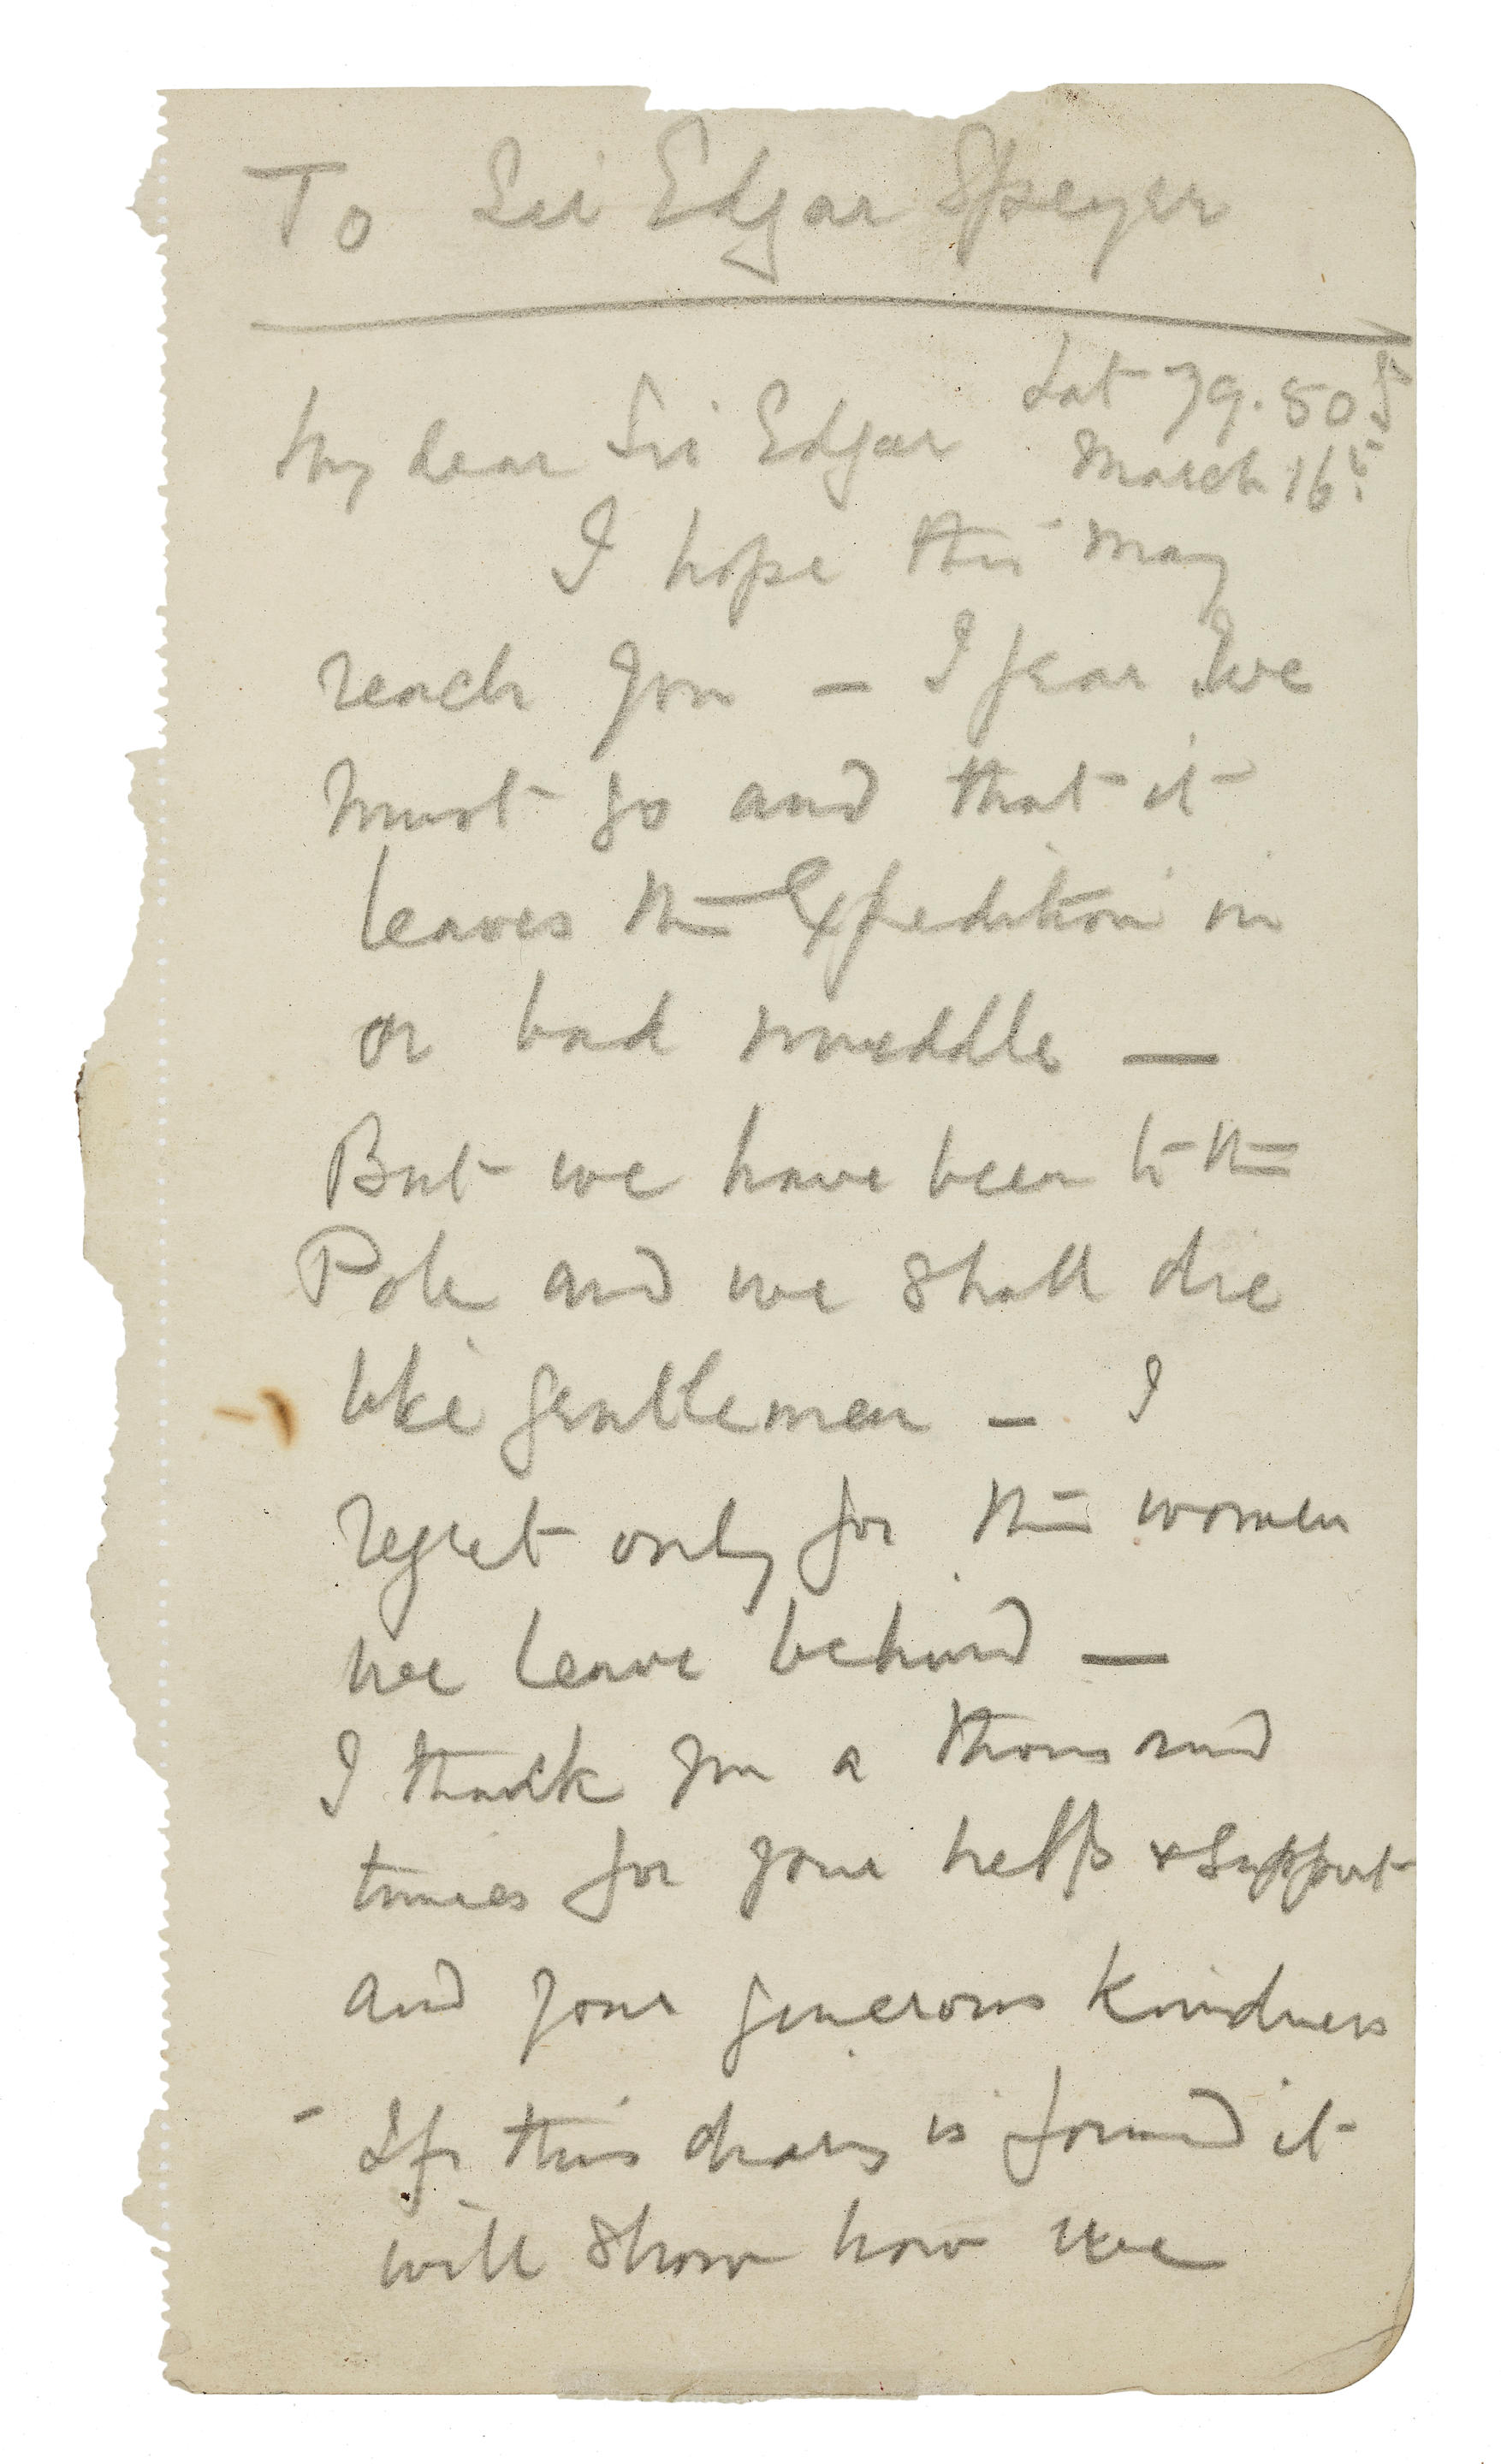 To Sir Edgar Speyer
Lat 79.50 S
March 16th
My dear Sir Edgar
I hope this may
reach you – I fear we
must go and that it
leaves the Expedition in
a bad muddle –
But we have been to the
Pole and we shall die
like gentlemen – I
regret only for the women
we leave behind –
I thank you a thousand
times for your help & support
and your generous kindness
– If this diary is found it
will show how we